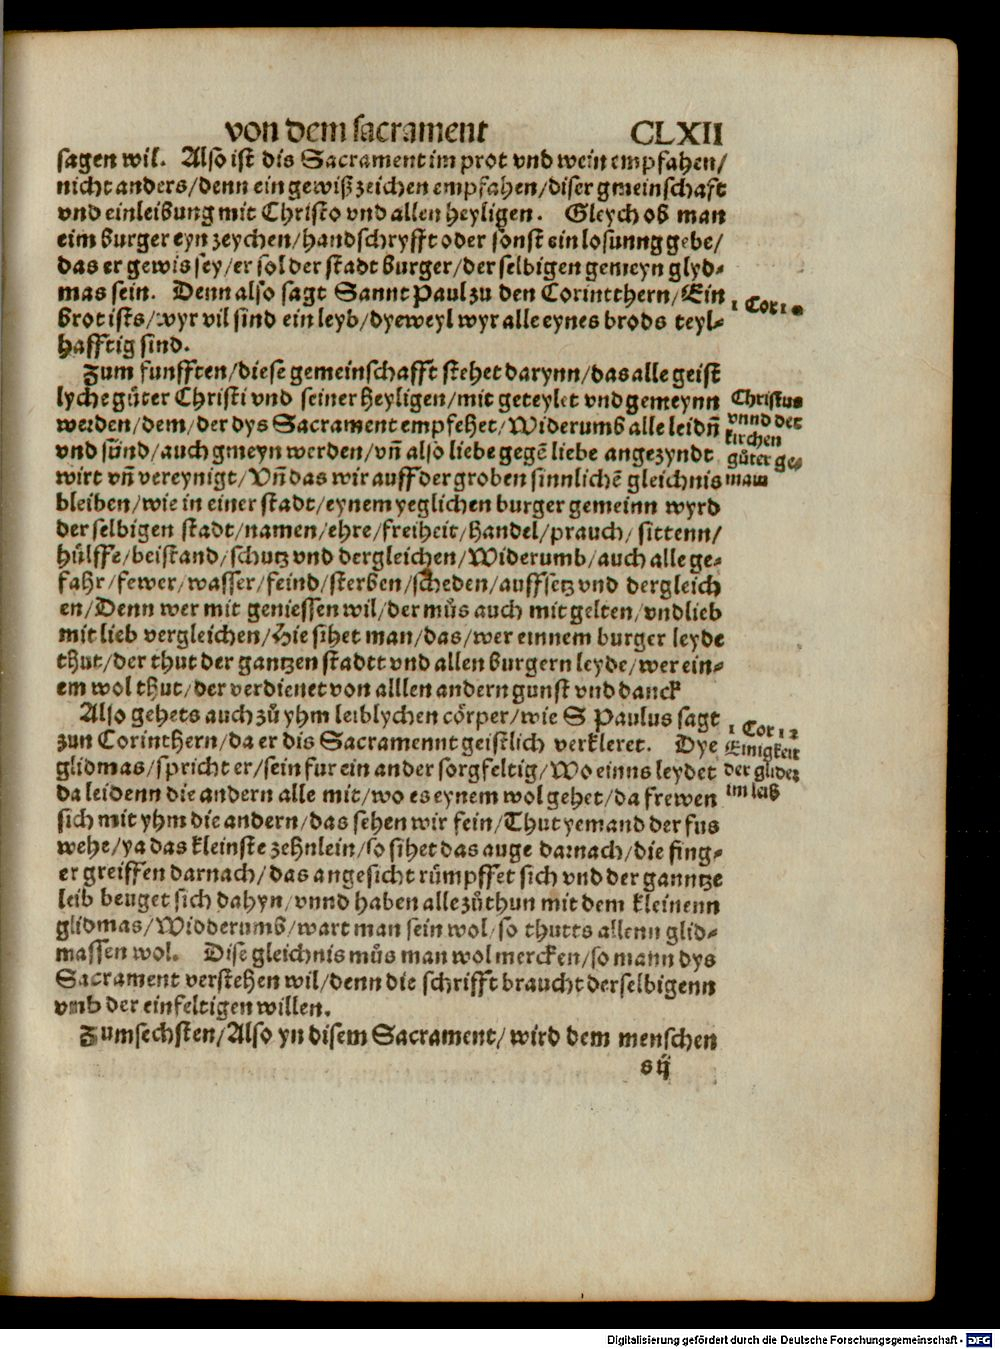 von dem sacrament CLXII
sagen wil. Also ist dis Sacrament im prot vnd wein empfahen/
nicht anders/denn ein gewiß zeichen empfahen/diser gmeinschaft
vnd einleibung mit Christo vnd allen heyligen. Gleych ob man
eim burger eyn zeychen/handschryfft oder sonst ein losunng gebe/
das er gewis sey/er sol der stadt burger/der selbigen gemeyn glyd-
mas sein. Denn also sagt Sannt Paul zu den Corintthern/Ein
brot ists/wyr vil sind ein leyb/dyeweyl wyr alle eynes brods teyl-
hafftig sind.
1 Cor 10
Zum funfften/diese gemeinschafft stehet darynn/das alle geist
lyche gůter Christi vnd seiner heyligen/mit geteylet vnd gemeynn
werden/dem/der dys Sacrament empfehet/Widerumb alle leidn̄
vnd sůnd/auch gmeyn werden/vn̄ also liebe gegē liebe angezyndt
wirt vn̄ vereynigt/Vn̄ das wir auff der groben sinnlichē gleichnis
bleiben/wie in einer stadt/eynem yeglichen burger gemeinn wyrd
der selbigen stadt/namen/ehre/freiheit/handel/prauch/sittenn/
hůlffe/beistand/schutz vnd dergleichen/Widerumb/auch alle ge-
fahr/fewer/wasser/feind/sterben/scheden/auffsetz vnd dergleich
en/Denn wer mit geniessen wil/der můs auch mit gelten/vnd lieb
mit lieb vergleichen/Hie sihet man/das/wer einnem burger leyde
thut/der thut der gantzen stadtt vnd allen burgern leyde/wer ein-
em wol thut/der verdienet von alllen andern gunst vnd danck
Christus
vnnd der
kirchen
gůter ge-
main
Also gehets auch zů yhm leiblychen cörper/wie S Paulus sagt
zun Corinthern/da er dis Sacramennt geistlich verkleret. Dye
glidmas/spricht er/sein fur ein ander sorgfeltig/Wo einns leydet
da leidenn die andern alle mit/wo es eynem wol gehet/da frewen
sich mit yhm die andern/das sehen wir fein/Thut yemand der fus
wehe/ya das kleinste zehnlein/so sihet das auge darnach/die fing-
er greiffen darnach/das angesicht růmpffet sich vnd der ganntze
leib beuget sich dahyn/vnnd haben alle zůthun mit dem kleinenn
glidmas/Widderumb/wart man sein wol/so thutts allenn glid-
massen wol. Dise gleichnis můs man wol mercken/so mann dys
Sacrament verstehen wil/denn die schrifft braucht derselbigenn
vmb der einfeltigen willen.
1 Cor 12
Einigkeit
der glider
im leib
Zumsechsten/Also yn disem Sacrament/wird dem menschen
s ij
Digitalisierung gefördert durch die Deutsche Forschungsgemeinschaft - DFG